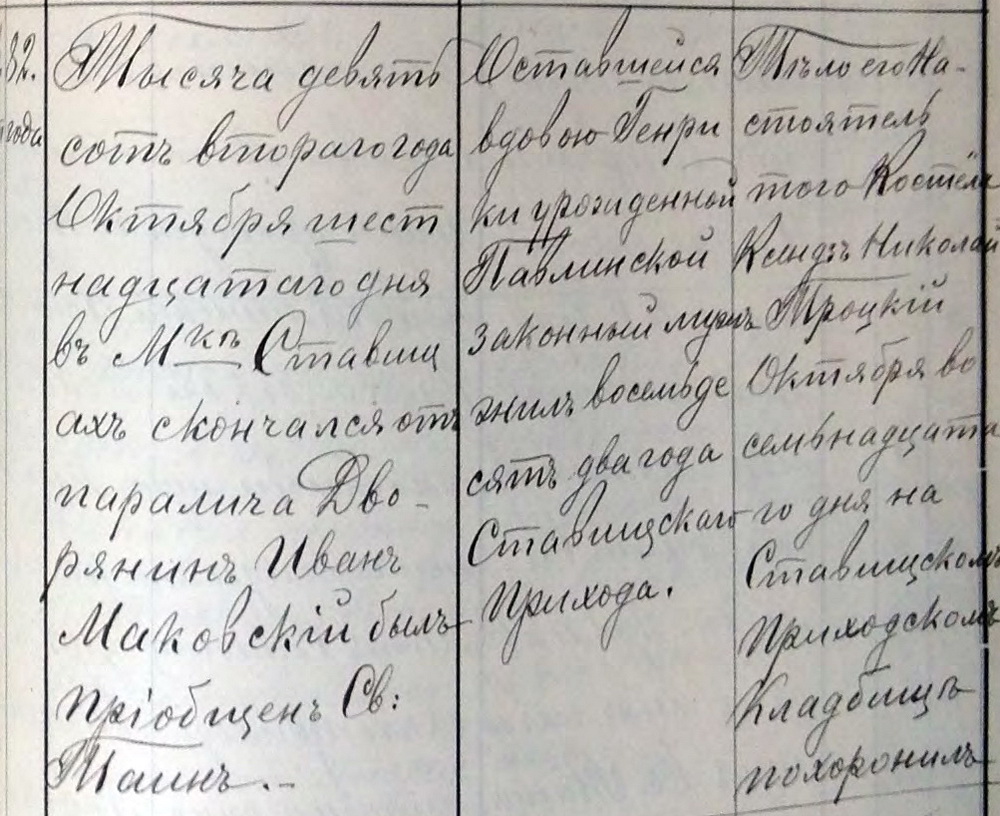 82.
года
Тысяча девять
сотъ втораго года
Октября шест
надцатаго дня
въ М-кѣ Ставищ
ахъ скончался отъ
паралича Дво-
рянинъ Иванъ
Маковскій былъ
пріобщенъ Св:
Таинъ.-
Оставшейся
вдовою Генри
ки урожденной
Павлинской
законный мужъ
жилъ восемьде
сятъ два года
Ставищскаго
Прихода.
Тѣло его На-
стоятель
того Костёла
Ксендзъ Николай
Троцкій
Октября во
семьнадцата
го дня на
Ставищскомъ
Приходскомъ
Кладбищѣ
похоронилъ